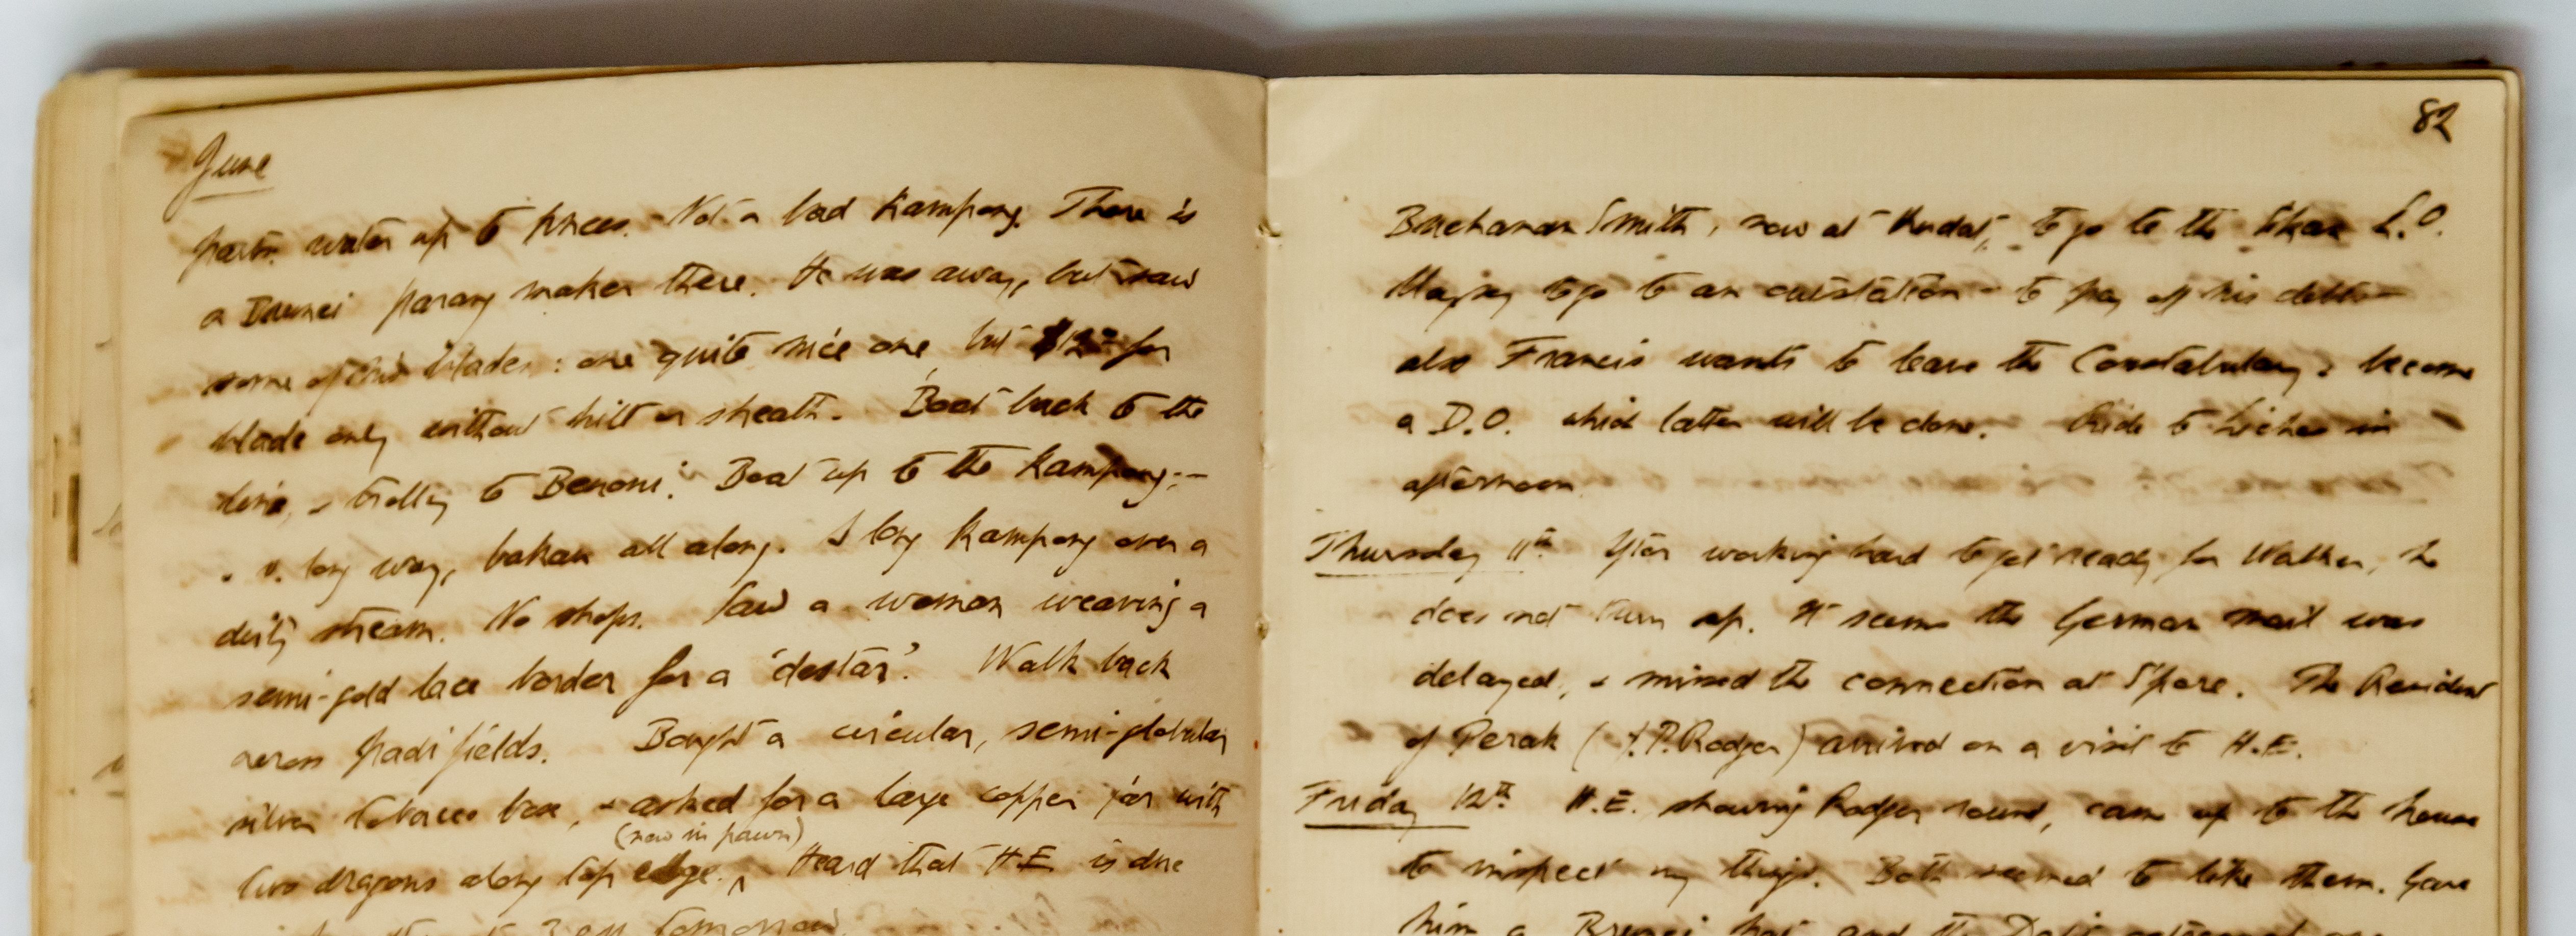 June
water up to knees. Not a bad Kampong. There is
a Brunei parang maker there. He was away, but saw
some of his blades: one quite nice one, but $12 for
blade only without hilt or sheath. Boat back to the
line, & trolley to Benoni. Boat up to the Kampong:-
a v. long way, bakau all along. A long Kampong over a
dirty stream. No shops. Saw a woman weaving a
semi-gold lace border for a 'destar'. Walk back
across padi fields. Bought a circular, semi-globular
silver tobacco box, & asked for a large copper jar with
(now in pawn)
two dragons along top edge. Heard that H.E. is due
tomorrow.
82
Buchanan Smith, now at Kudat, to go to the
to go to an outstation - to pay off his debts -
also Francis wants to leave the Constabulary & become
a D.O. which latter will be done. Ride to in
afternoon.
Thursday 11th After working hard to get ready for Walker, he
does not turn up. It seems the German mail was
delayed, & missed the connection at S'pore. The Resident
of Perak (J.P. Rodger) arrived on a visit to H.E.
Friday 12th H.E. showing Rodger round, came up to the house
to inspect my things. Both seemed to like them. Gave
him a Brunei hat and the